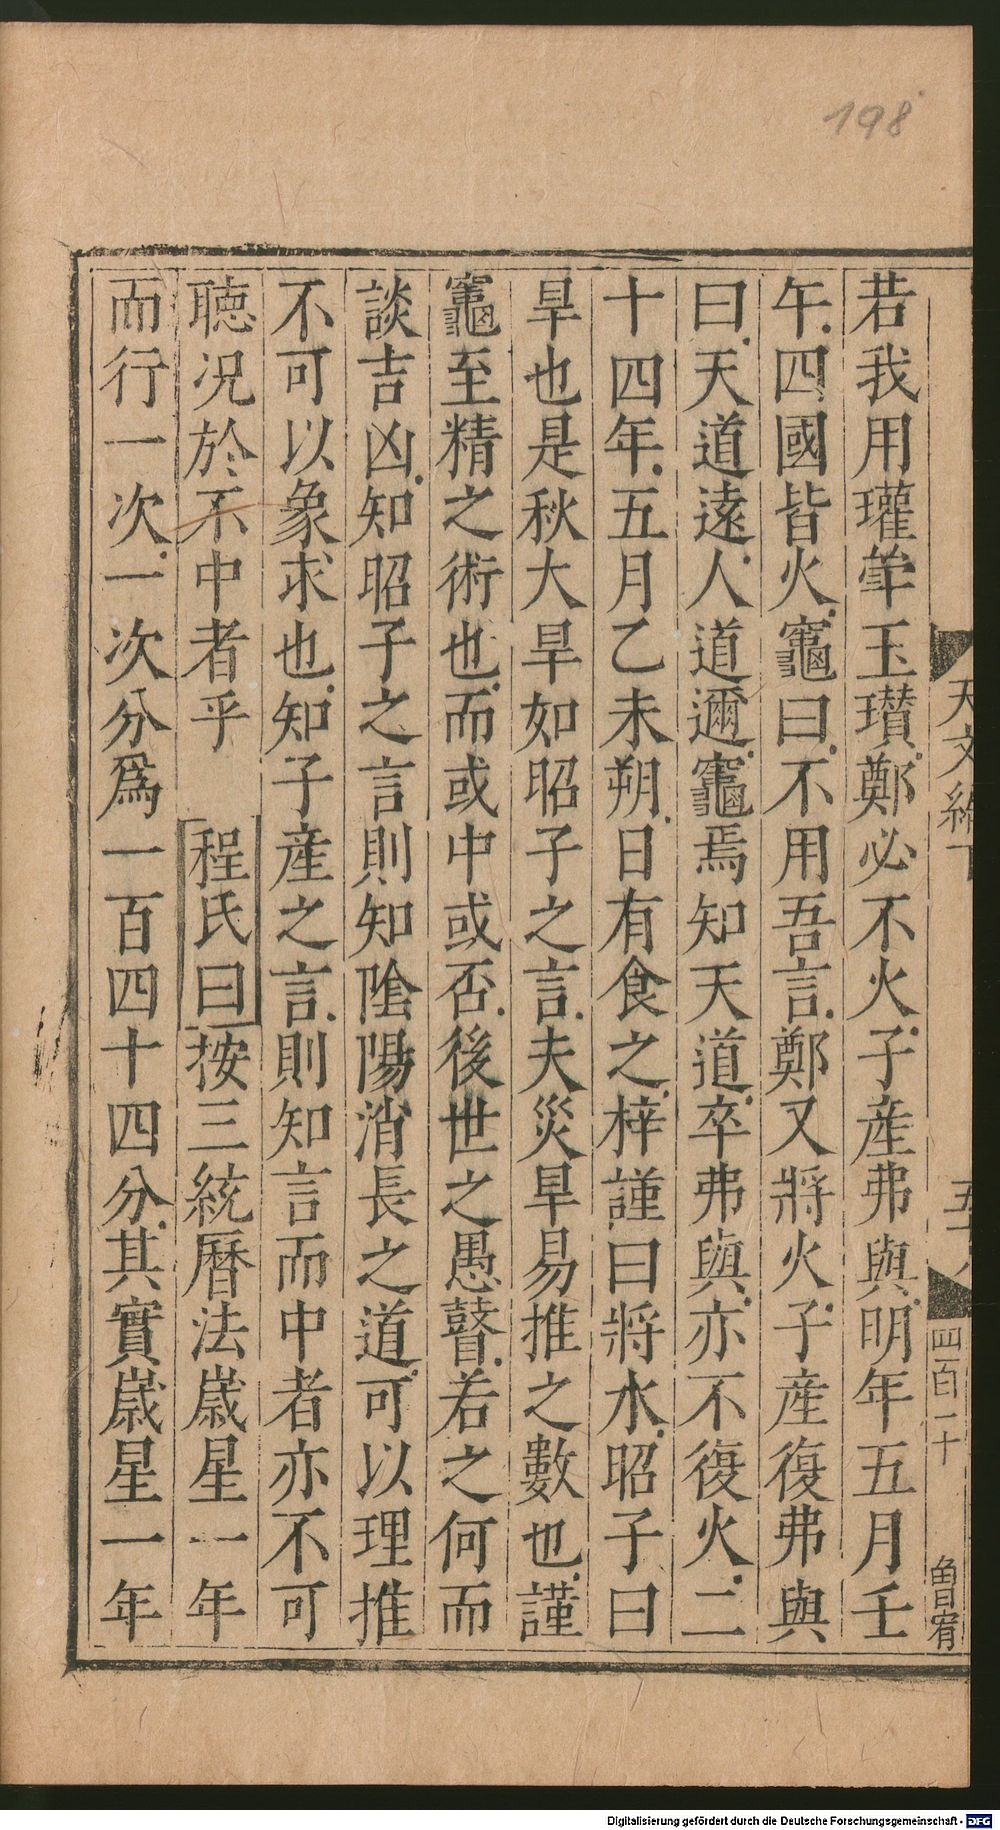 198
天文絶下
五十八
四百二十
魯宥
若我用瓘斚玉瓚鄭必不火子産弗與明年五月壬
午四國皆火竈曰不用吾言鄭又將火子産復弗與
曰天道遠人道邇竈焉知天道卒弗與亦不復火二
十四年五月乙未朔日有食之梓謹曰將水昭子曰
旱也是秋大旱如昭子之言夫災旱易推之數也謹
竈至精之術也而或中或否後世之愚瞽若之何而
談吉凶知昭子之言則知陰陽消長之道可以理推
不可以象求也知子産之言則知言而中者亦不可
聴況於不中者乎 程氏曰按三統曆法嵗星一年
而行一次一次分爲一百四十四分其實嵗星一年
Digitalisierung gefördert durch die Deutsche Forschungsgemeinschaft - DFG